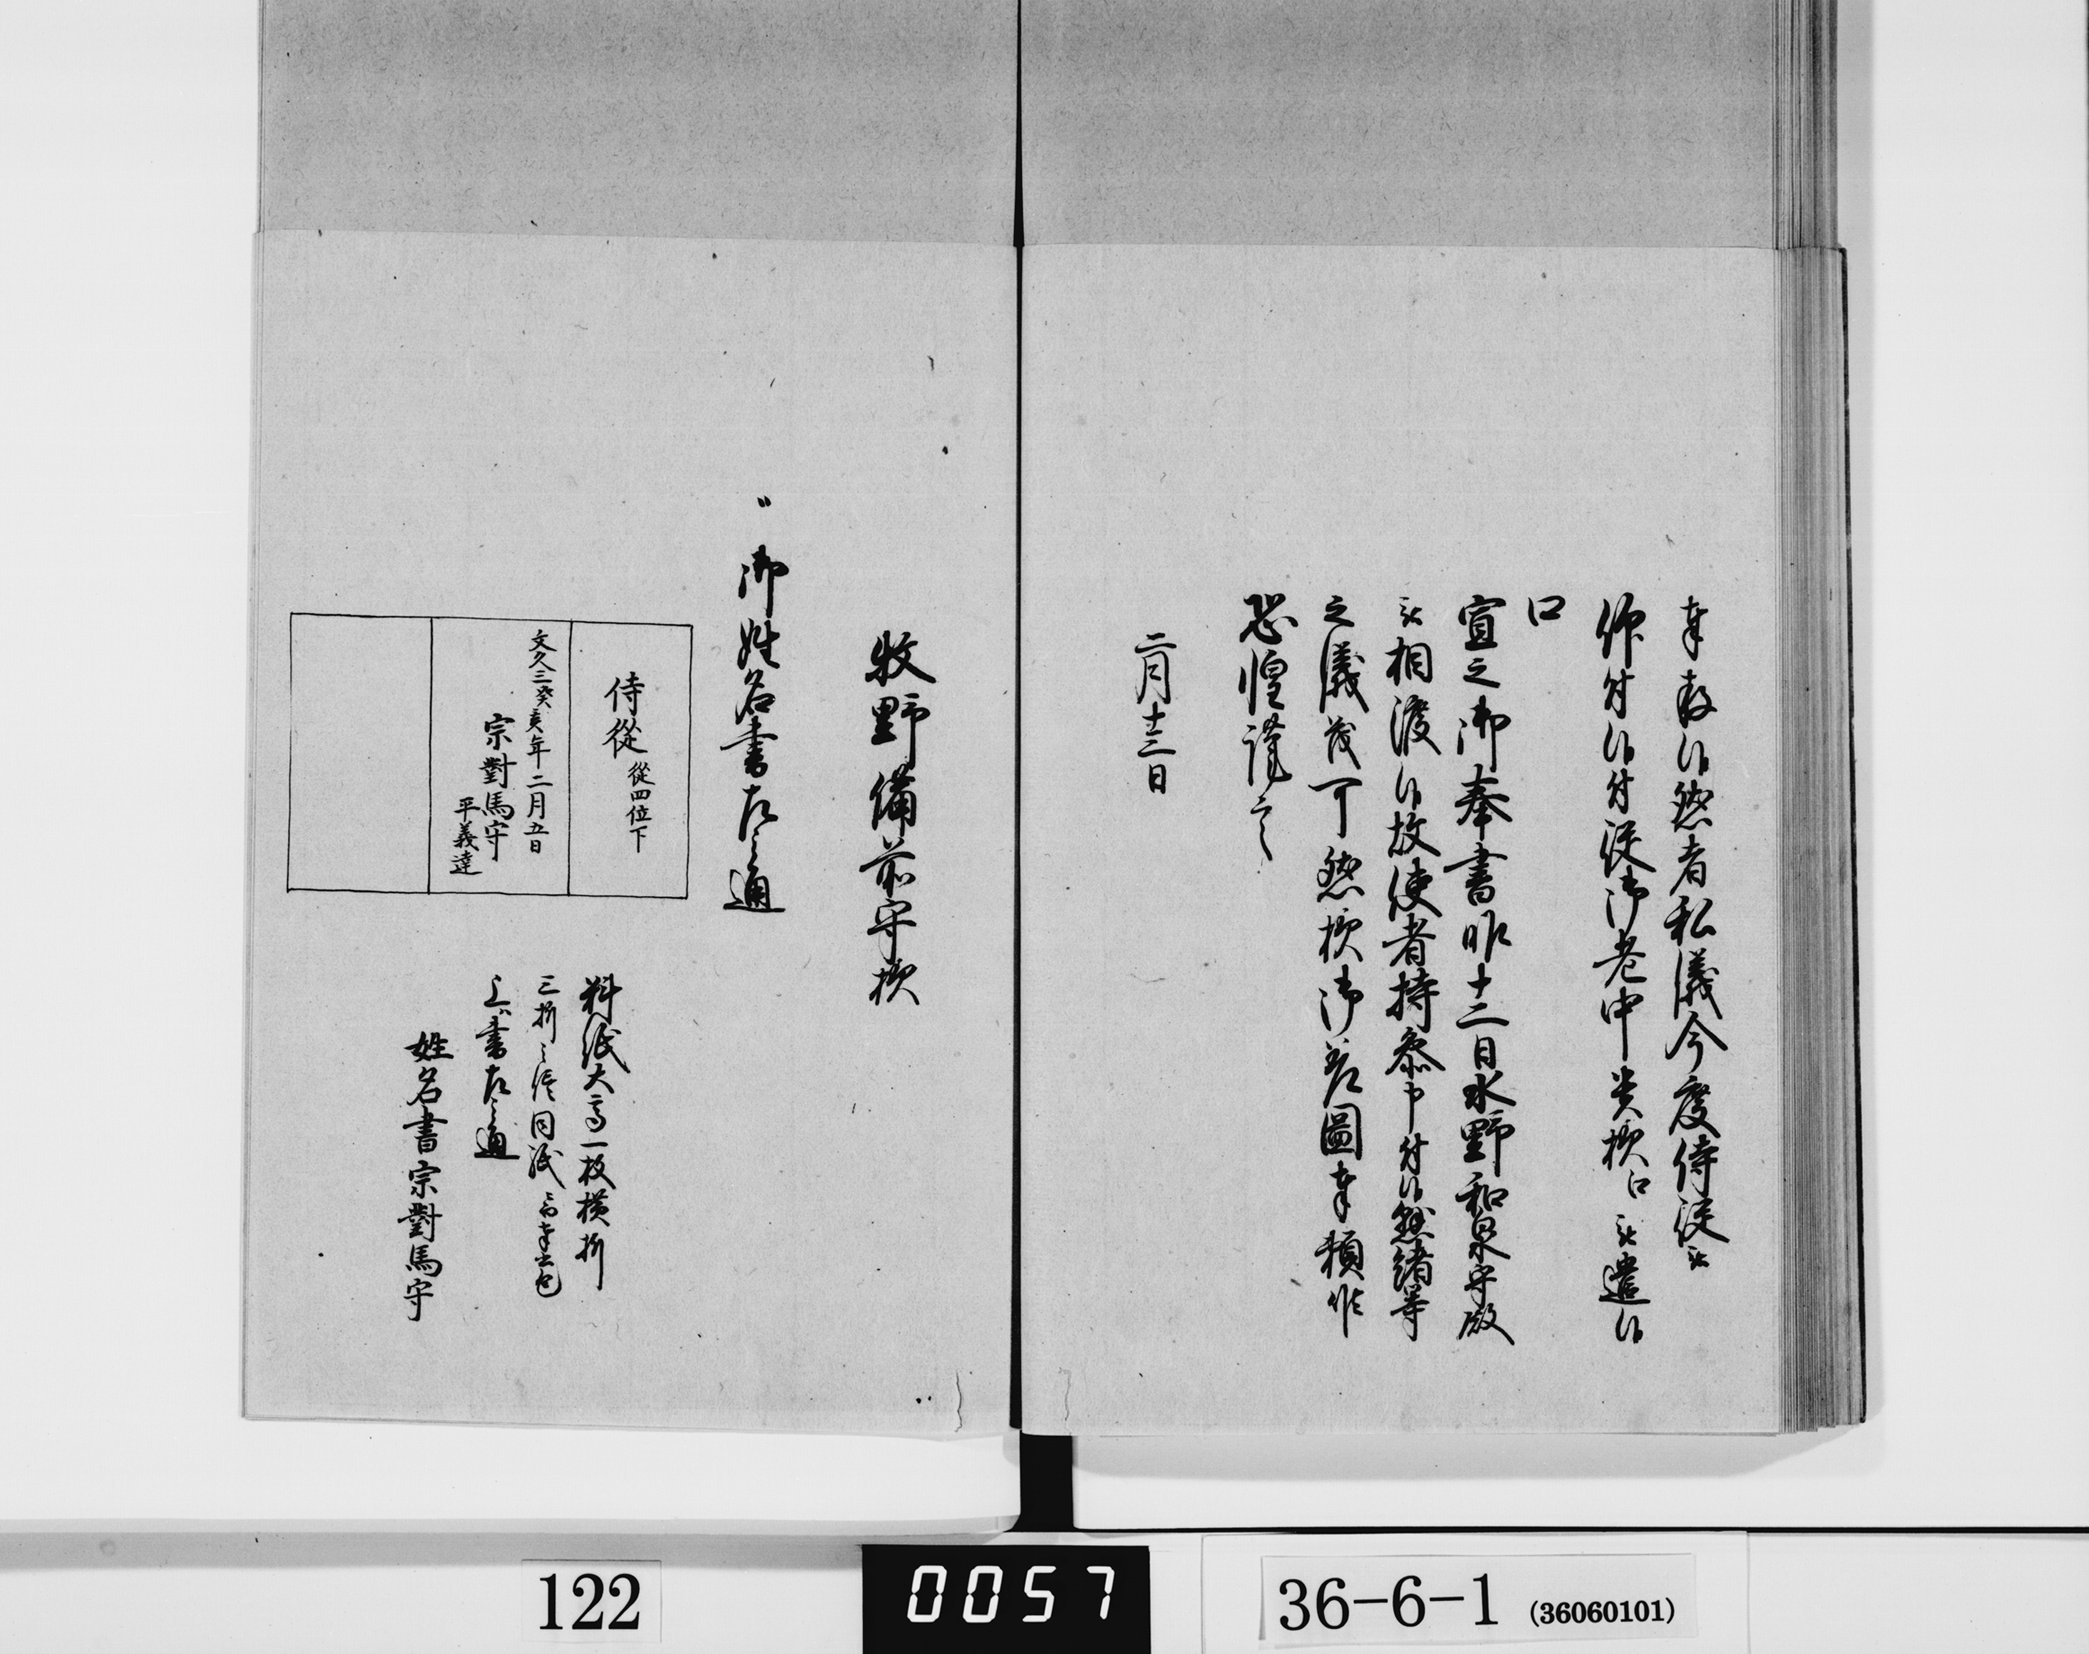 奉存候然者私儀今度侍従江
仰付候付従御老中貴様江之遣候
口
宣之御奉書昨十二日水野和泉守殿
ゟ相渡候故使者持参申付候然諸等
之儀茂可然様御差圖奉頼候
恐惶謹言
二月十三日
牧野備前守様
〃御姓名書左之通
侍從 從四位下
文久三癸亥年二月五日
宗對馬守
平義達
料紙大高一枚横折
三折之儘同紙ニ而
上書左之通
姓名書宗對馬守
122
0057
36-6-1 (36060101)